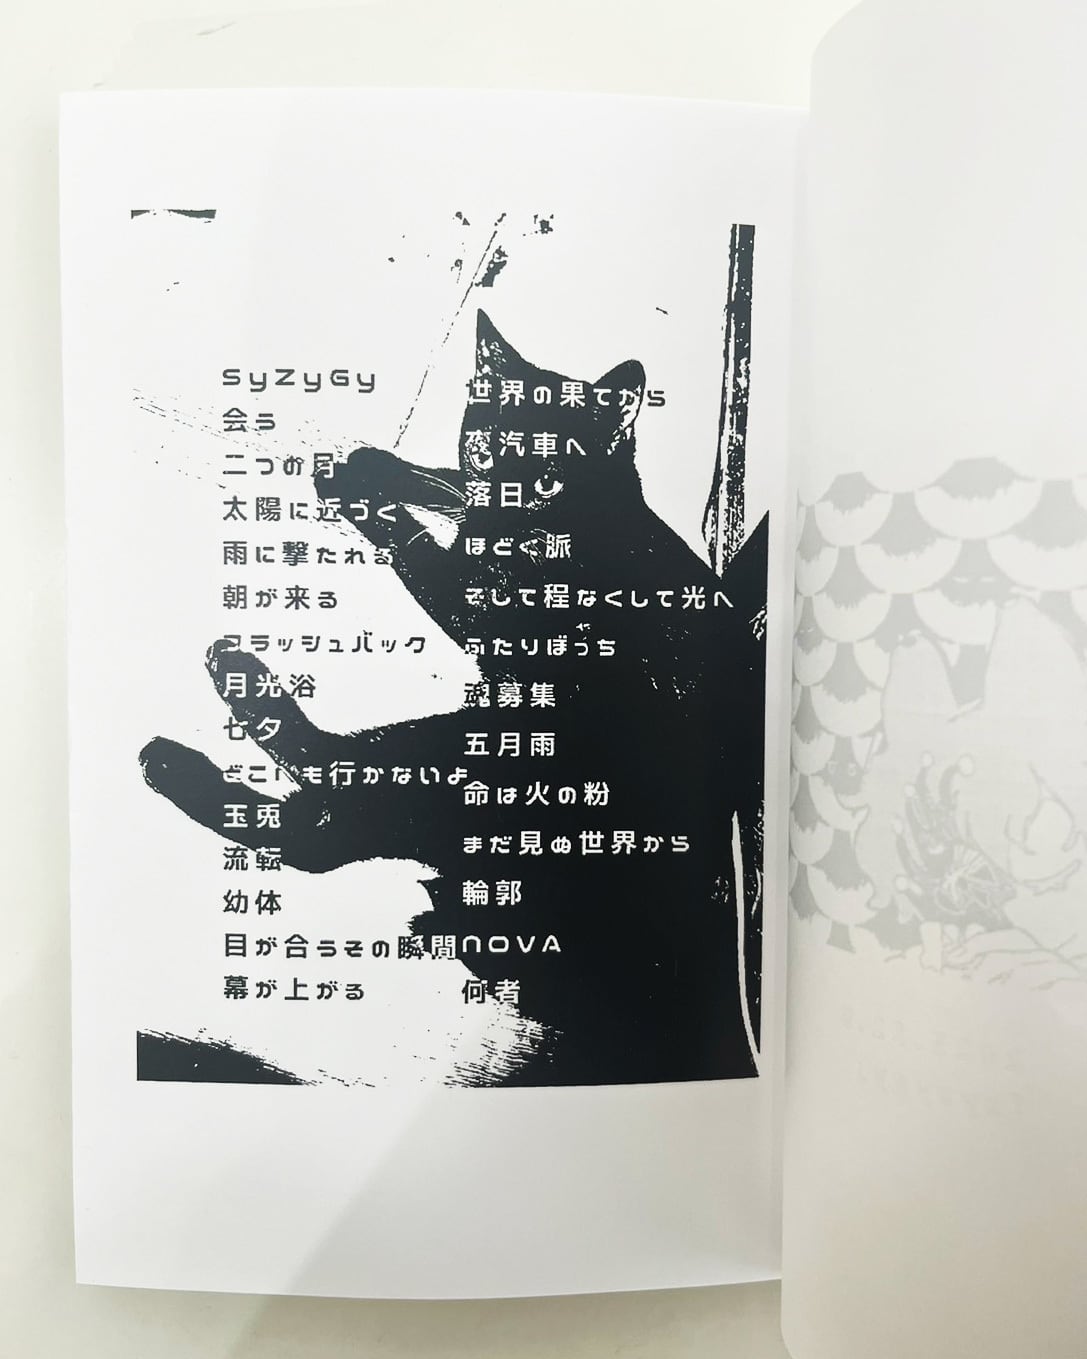 SyZyGy
会う
二つの月
太陽に近づく
雨に撃たれる
朝が来る
フラッシュバック
月光浴
七夕
どこへも行かないよ
玉兎
流転
幼体
目が合うその瞬間
幕が上がる
世界の果てから
夜汽車へ
落日
ほどく脈
そして程なくして光へ
ふたりぼっち
魂募集
五月雨
命は火の粉
まだ見ぬ世界から
輪郭
NOVA
何者